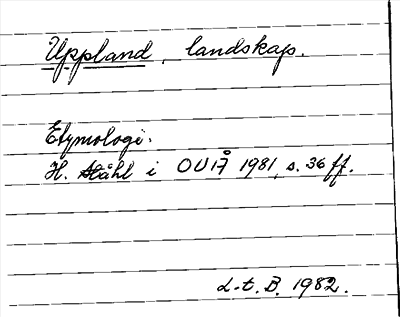 Uppland, landskap.
Etymologi.
H. Ståhl i OUÅ 1981, s. 36 ff.
L.t. B. 1982.